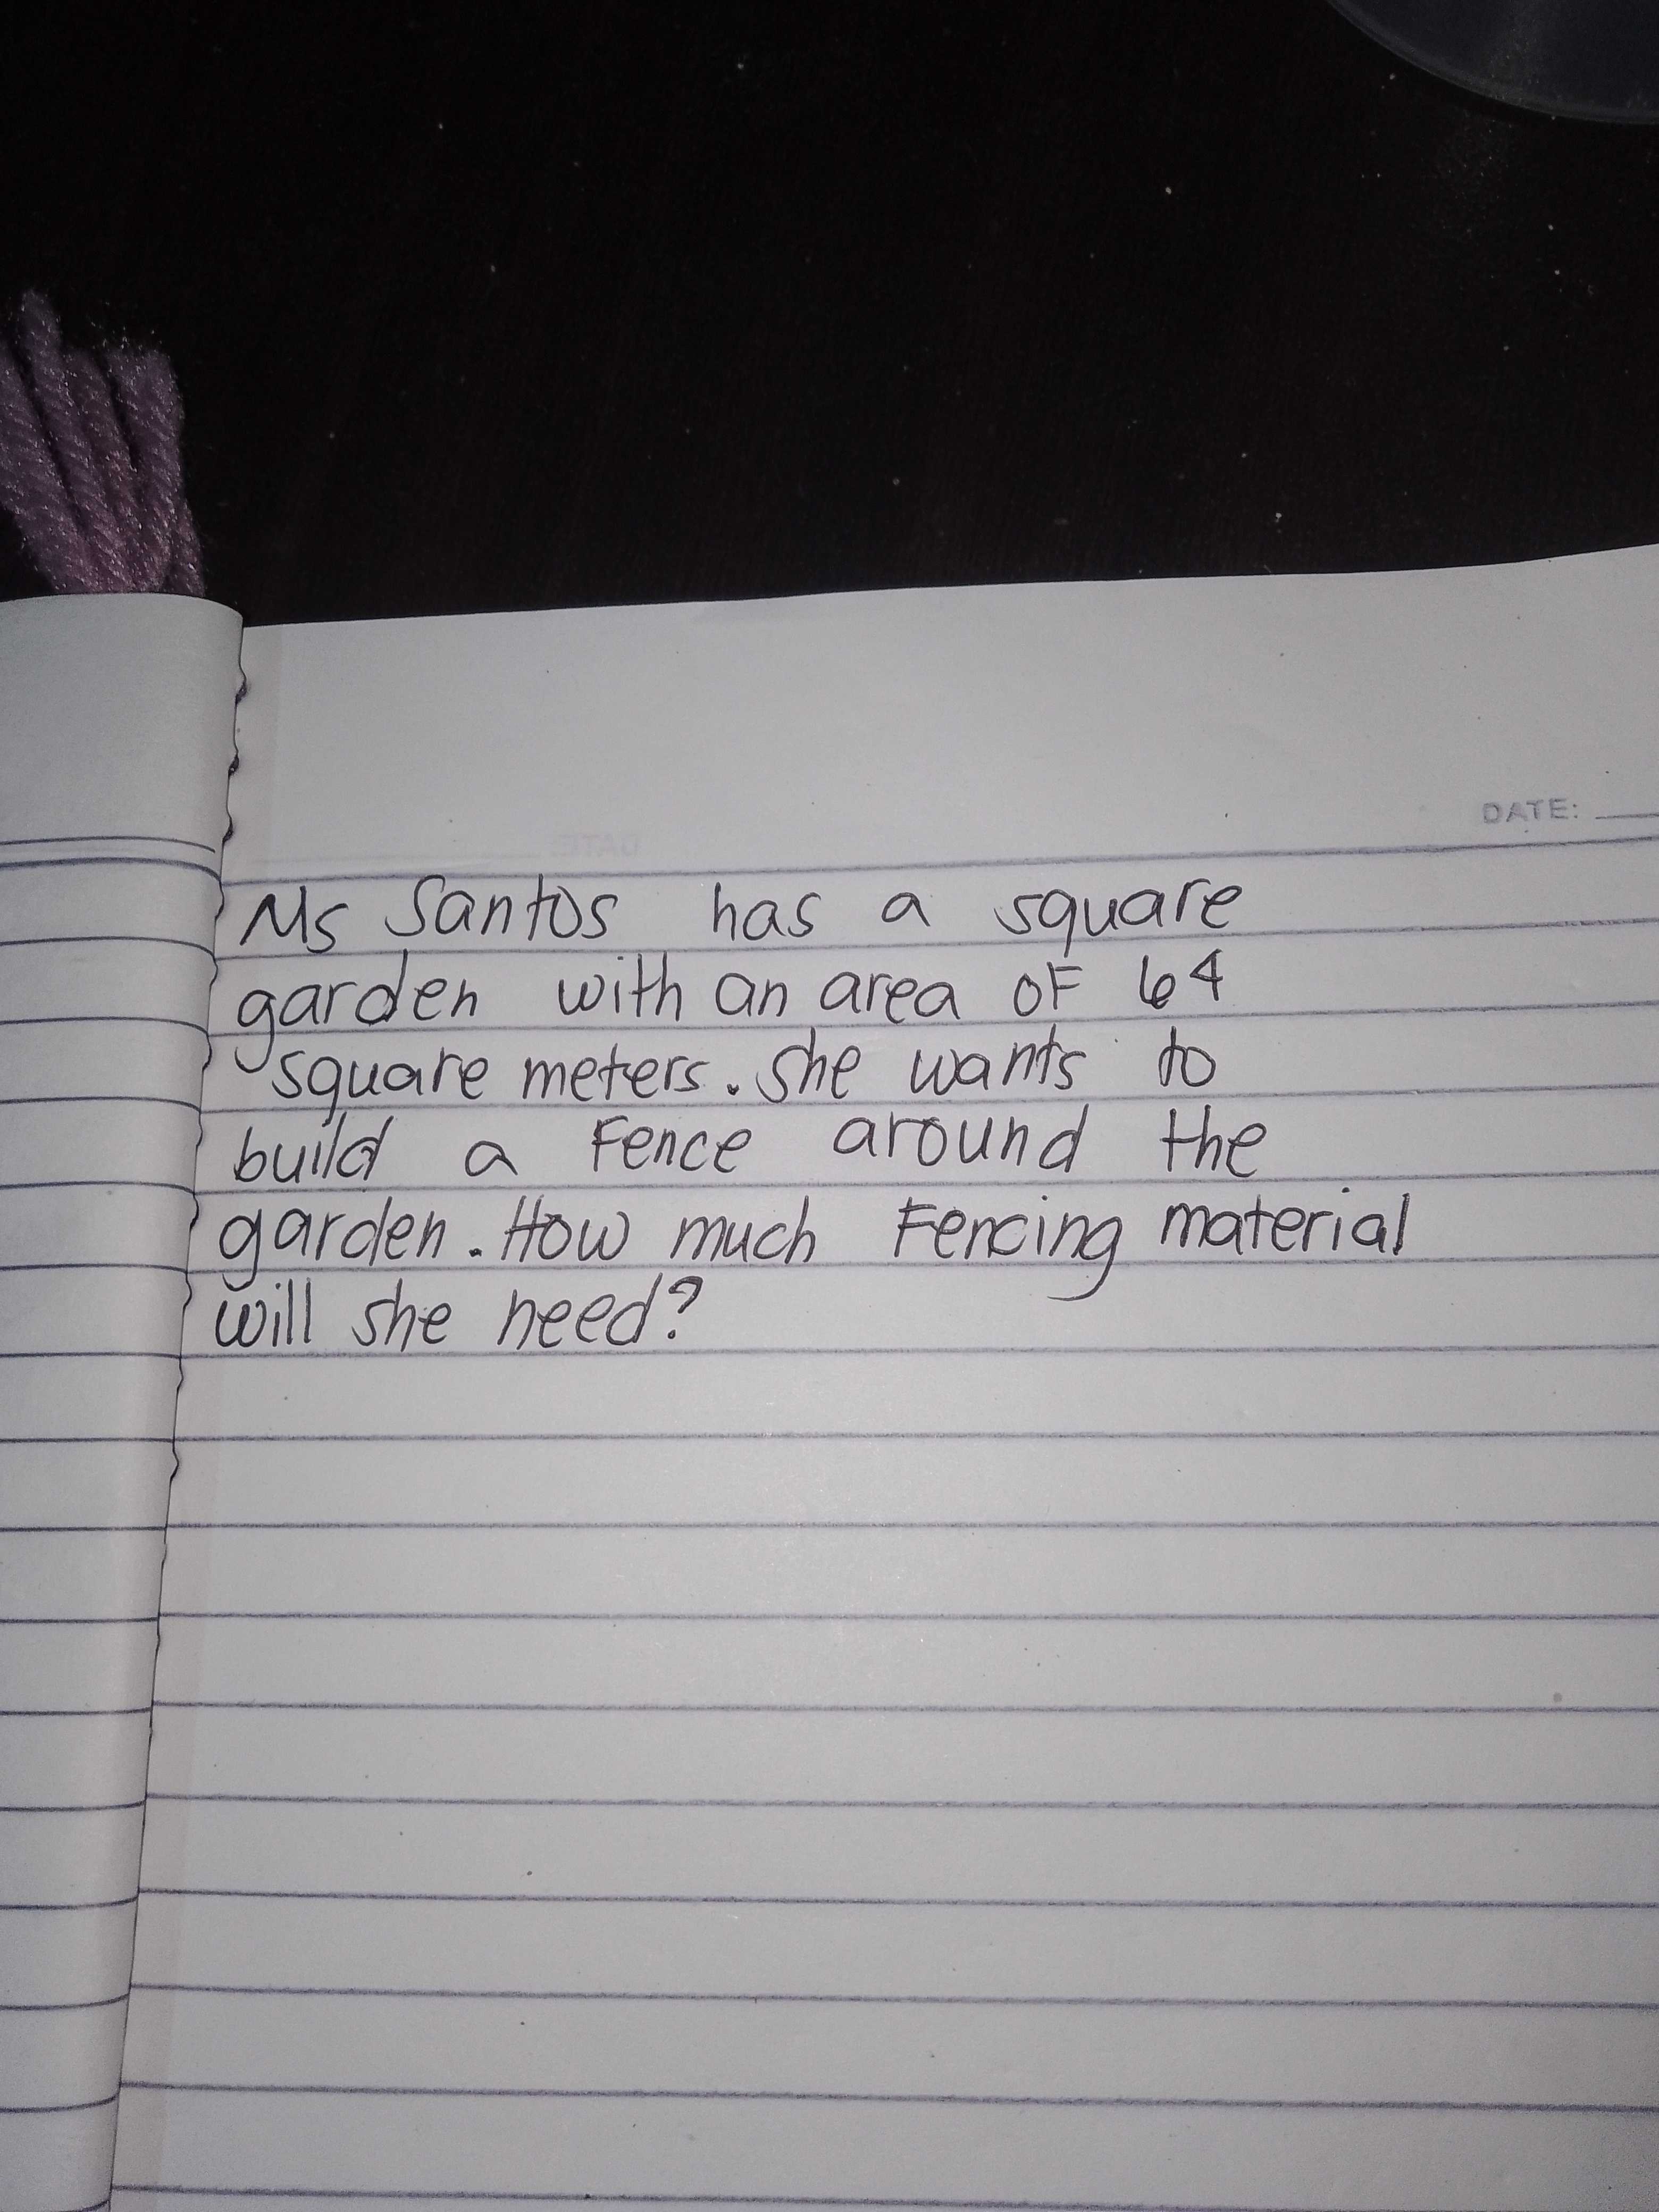 DATE:
Ms Santos has a square
garden with an area of 64
square meters. She wants to
build a Fence around the
garden. How much Fencing material
will she need?